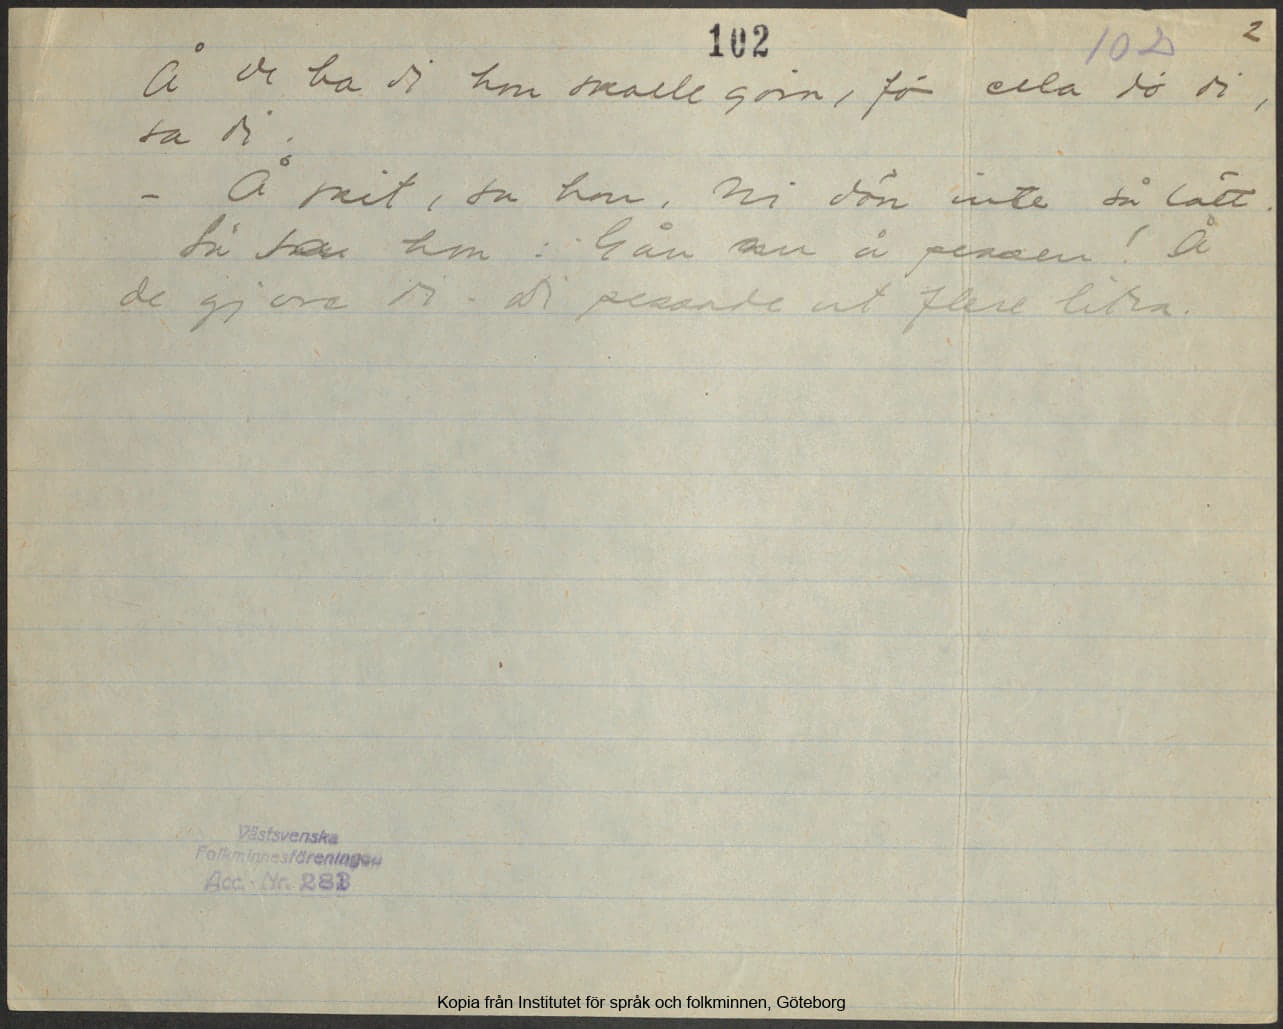 102
102 2
Å de ba di hon skulle göra, för ella dö di,
sa di.
- Å skit, sa hon, Ni dön inte så lätt.
Så sa hon: Gån nu å pessen! Å
de gjore di. Di pessade ut flere litra.
Västsvenska
Folkminnesföreningen
Acc. Nr. 283
Kopia från Institutet för språk och folkminnen, Göteborg